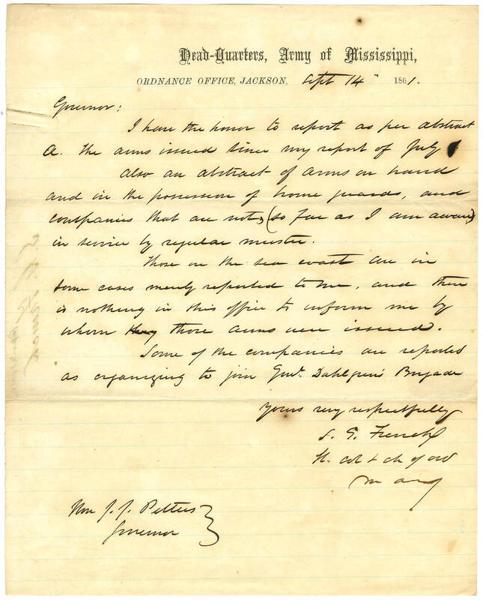 Head-Quarters, Army of Mississippi,
ORDNANCE OFFICE, JACKSON, Sept 14 1861.
Governor:
I have the honor to report as per abstract
A. the arms issued since my report of July
also an abstract of arms on hand
and in the possession of home guards, and
companies that are not, (so far as I am aware)
in service by regular muster.
Those on the sea coast are in
some cases merely reported to me, and there
is nothing in this office to inform me by
whom they those arms were issued.
Some of the companies are reported
as organizing to join Genl. Dahlgren's Brigade
Yours very respectfully
S. G. French
Lt. col & ch of ord
Hon J. J. Pettus
Governor